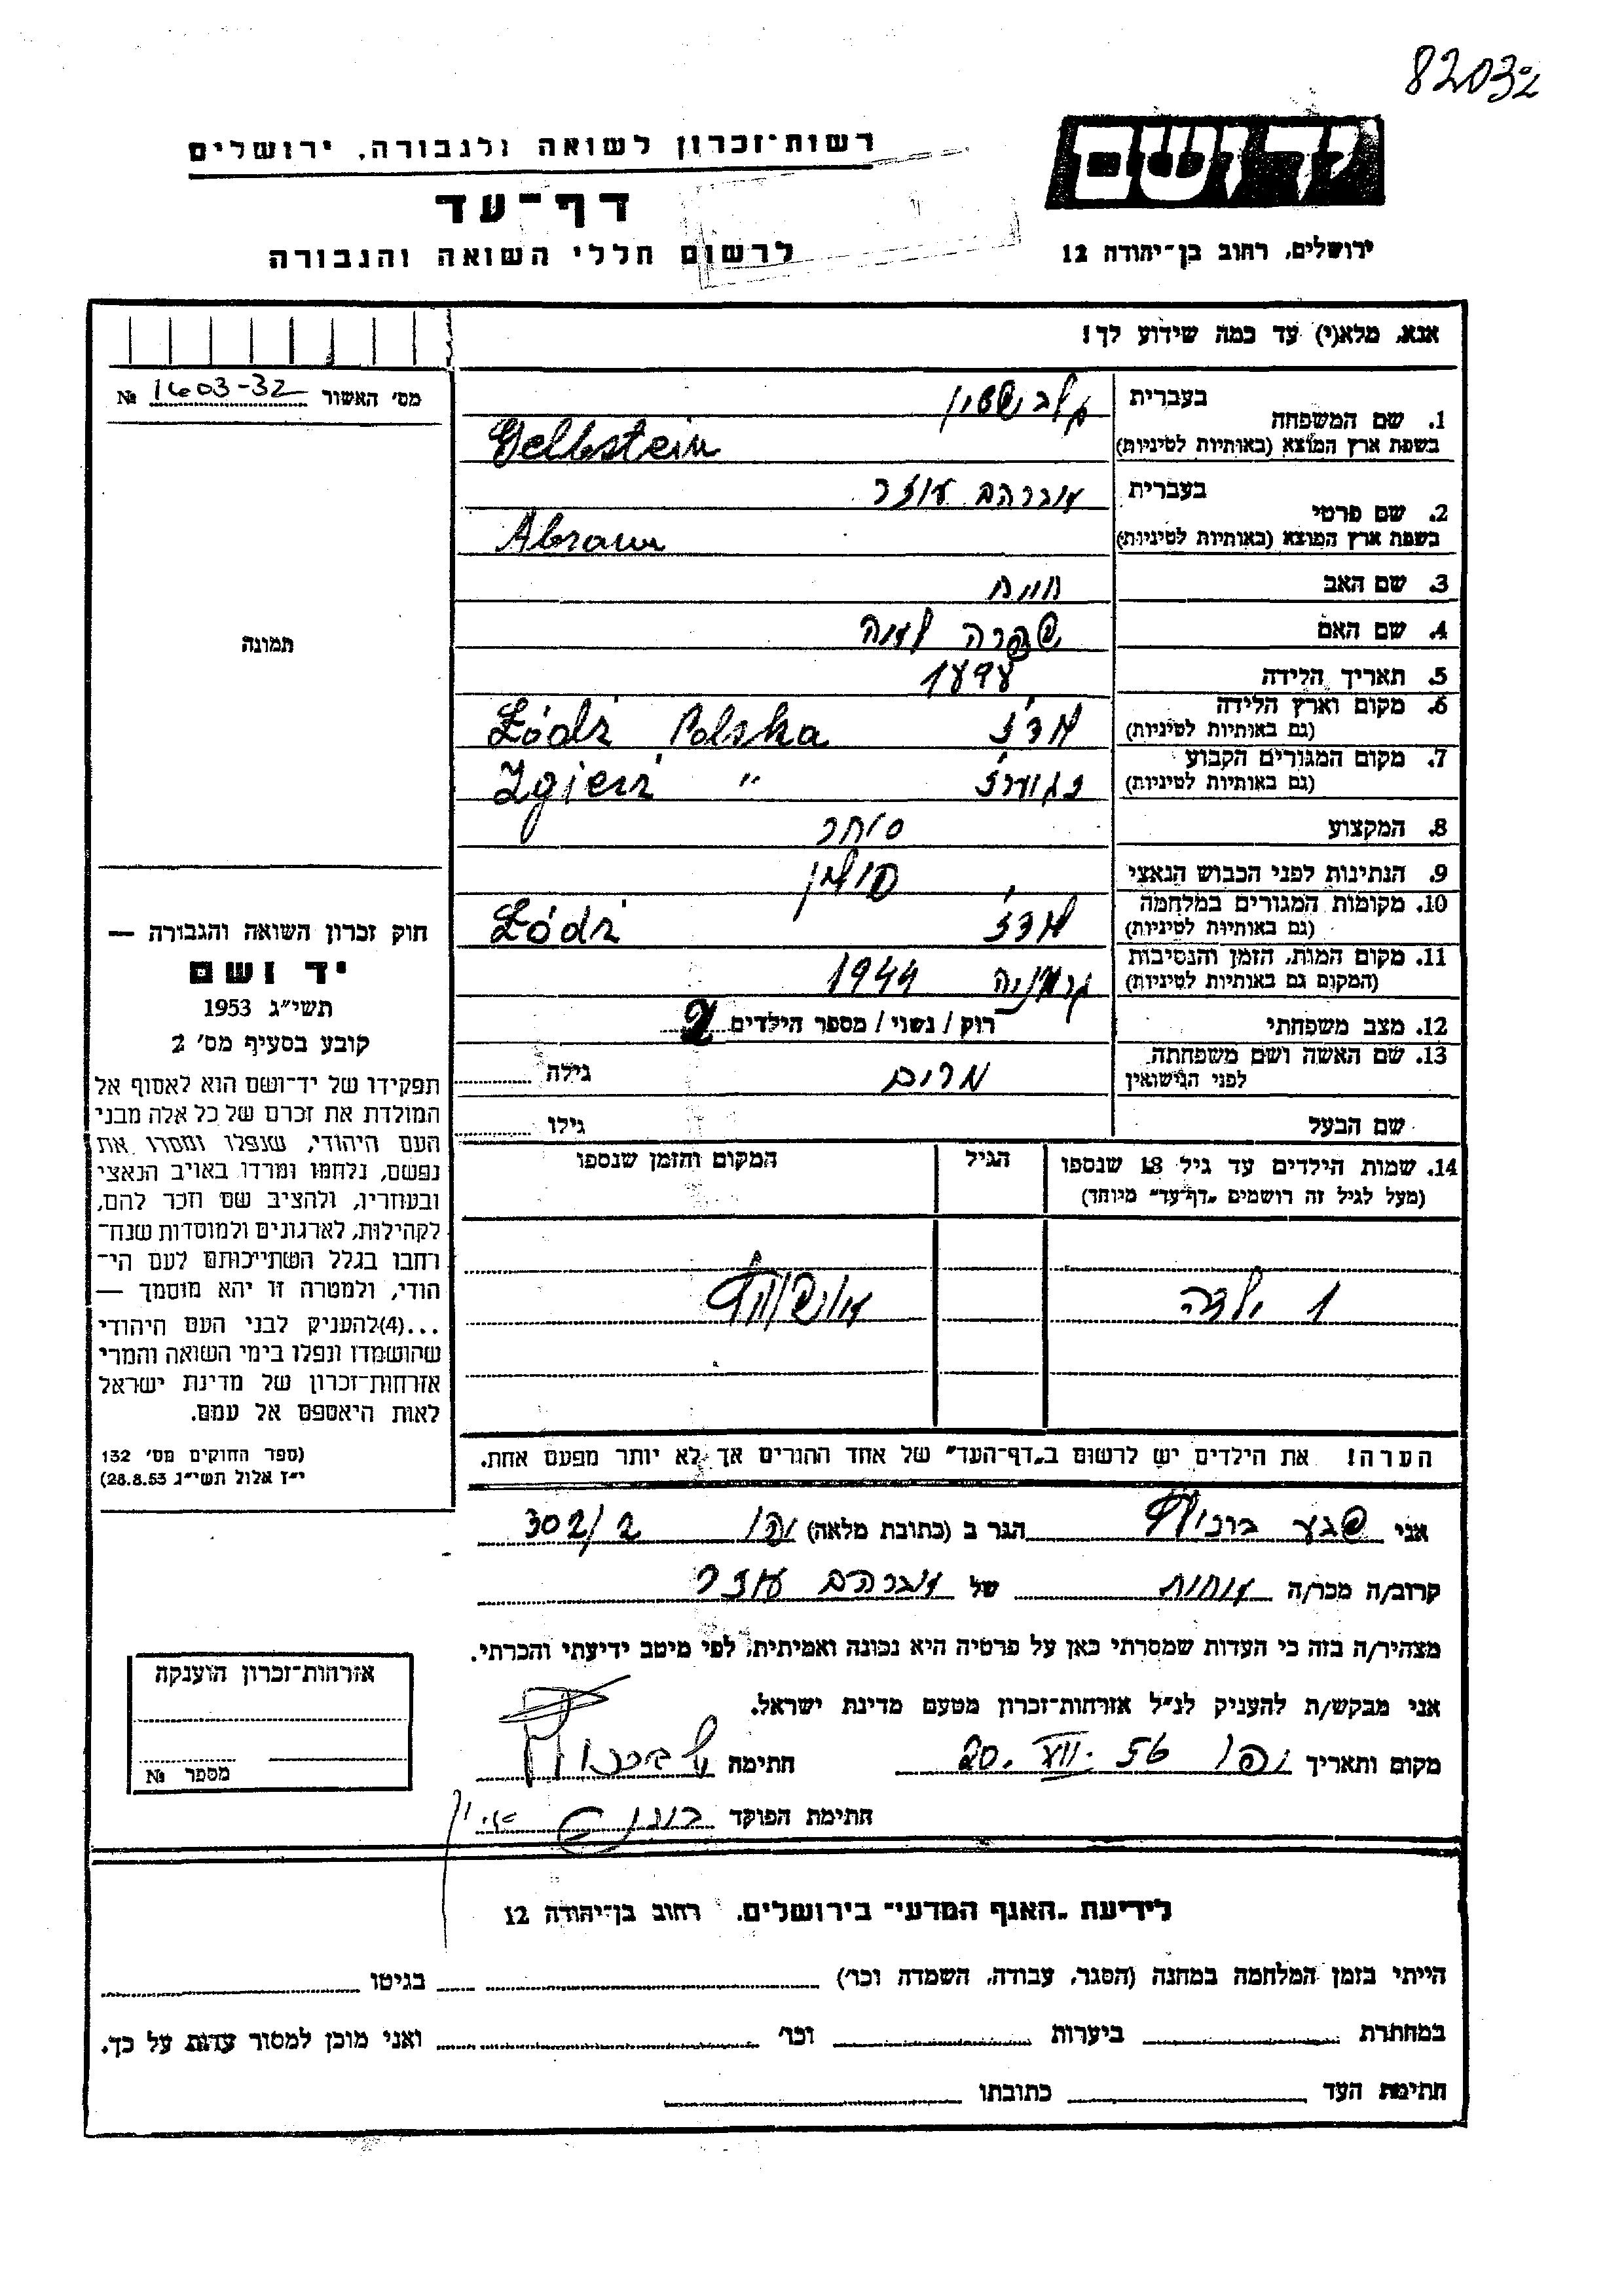 8203%
יד ושם
רשות-זכרון לשואה ולגבורה, ירושלים
דף-עד
לרשום חללי השואה והגבורה
ירושלים, רחוב בן-יהודה 12
אנא, מלא(י) עד כמה שידוע לך!
מס' האשור 1603-32 №
1. שם המשפחה בעברית גלבשטין
בשפת ארץ המוצא (באותיות לטיניות) Gelbstein
2. שם פרטי בעברית אברהם עוזר
בשפת ארץ המוצא (באותיות לטיניות) Abram
3. שם האב חיים
4. שם האם שפרה לאה
5. תאריך הלידה
6. מקום וארץ הלידה (גם באותיות לטיניות) לודז' Łódź Polska
7. מקום המגורים הקבוע (גם באותיות לטיניות) זגירז' Zgierz "
8. המקצוע סוחר
9. הנתינות לפני הכבוש הנאצי פולין
10. מקומות המגורים במלחמה (גם באותיות לטיניות) לודז' Łódź
11. מקום המות, הזמן והנסיבות (המקום גם באותיות לטיניות) גרמניה 1944
12. מצב משפחתי רוק / נשוי / מספר הילדים 2
13. שם האשה ושם משפחתה לפני הנישואין מרים גילה
שם הבעל גילו
14. שמות הילדים עד גיל 18 שנספו הגיל המקום והזמן שנספו
(מעל לגיל זה רושמים „דף-עד" מיוחד)
1 ילדה אושוויץ
הערה! את הילדים יש לרשום ב„דף-העד" של אחד ההורים אך לא יותר מפעם אחת.
תמונה
חוק זכרון השואה והגבורה —
יד ושם
תשי"ג 1953
קובע בסעיף מס' 2
תפקידו של יד-ושם הוא לאסוף אל
המולדת את זכרם של כל אלה מבני
העם היהודי, שנפלו ומסרו את
נפשם, נלחמו ומרדו באויב הנאצי
ובעוזריו, ולהציב שם וזכר להם,
לקהילות, לארגונים ולמוסדות שנח-
רבו בגלל השתייכותם לעם הי-
הודי, ולמטרה זו יהא מוסמך —
...(4)להעניק לבני העם היהודי
שהושמדו ונפלו בימי השואה והמרי
אזרחות-זכרון של מדינת ישראל
לאות היאספם אל עמם.
(ספר החוקים מס' 132
י"ז אלול תשי"ג 28.8.53)
אני הגר ב (כתובת מלאה) יפו 302/2
קרוב/ה מכר/ה אחות של אברהם עוזר
מצהיר/ה בזה כי העדות שמסרתי כאן על פרטיה היא נכונה ואמיתית, לפי מיטב ידיעתי והכרתי.
אני מבקש/ת להעניק לנ"ל אזרחות-זכרון מטעם מדינת ישראל.
מקום ותאריך יפו 20. VII. 56 חתימה
חתימת הפוקד
אזרחות-זכרון הוענקה
מספר №
לידיעת „האגף המדעי" בירושלים, רחוב בן-יהודה 12
הייתי בזמן המלחמה במחנה (הסגר, עבודה, השמדה וכר') בגיטו
במחתרת ביערות וכר' ואני מוכן למסור עדות על כך.
חתימת העד כתובתו